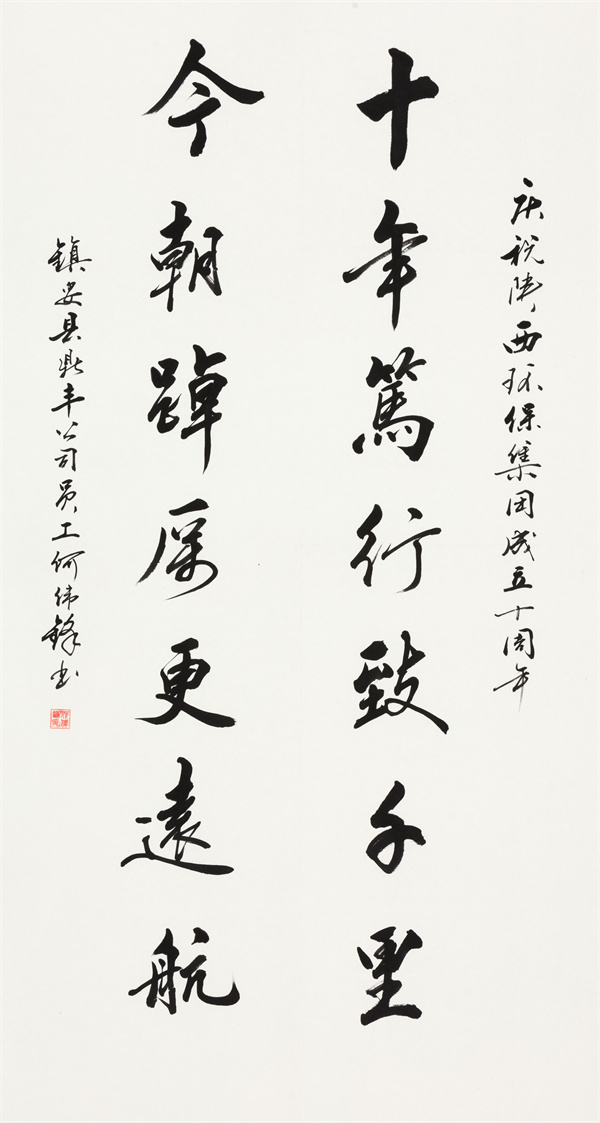 庆祝陕西环保集团成立十周年
十年篤行致千里
今朝踔厲更遠航
鎮安县鼎丰公司员工何伟鋒书